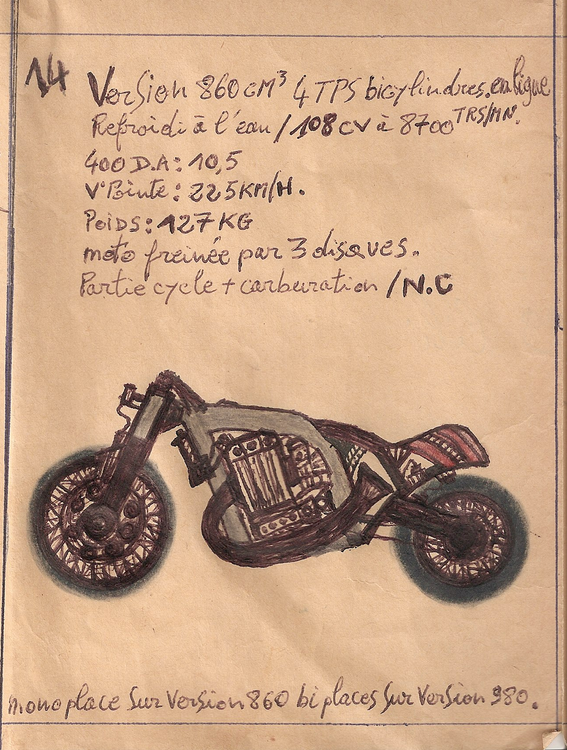 14
Version 860 CM³ 4 TPS bicylindres. en ligne
Refroidi à l'eau / 108 CV à 8700 TRS/MN.
400 D.A : 10,5
V° Pointe : 225 KM/H.
Poids : 127 KG
moto freinée par 3 disques.
Partie cycle + carburation / N.C
mono place sur version 860 bi places sur version 980.